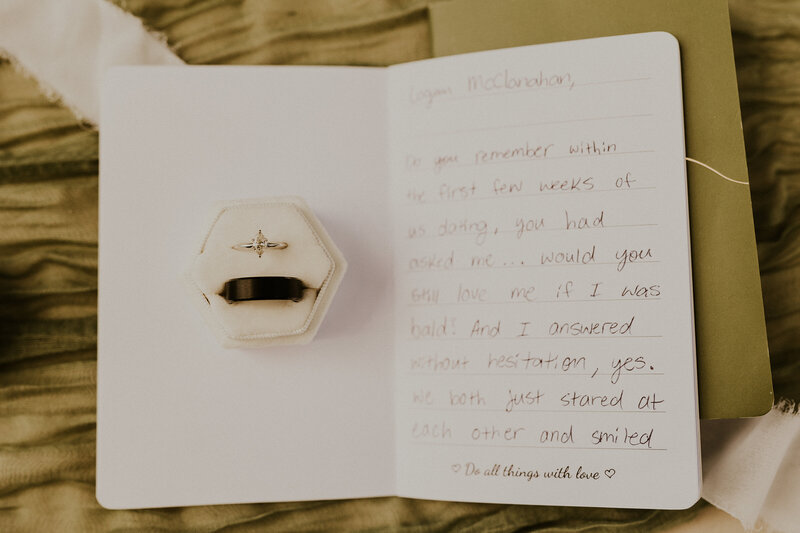 Logan McClanahan,
Do you remember within
the first few weeks of
us dating, you had
asked me... would you
still love me if I was
bald? And I answered
without hesitation, yes.
We both just stared at
each other and smiled
♡ Do all things with love ♡